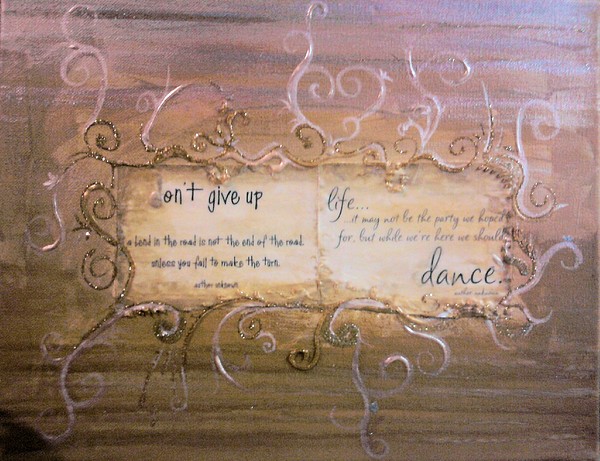 on't give up
a bend in the road is not the end of the road
unless you fail to make the turn.
author unknown
life...
...it may not be the party we hoped
for, but while we're here we should
dance.
author unknown